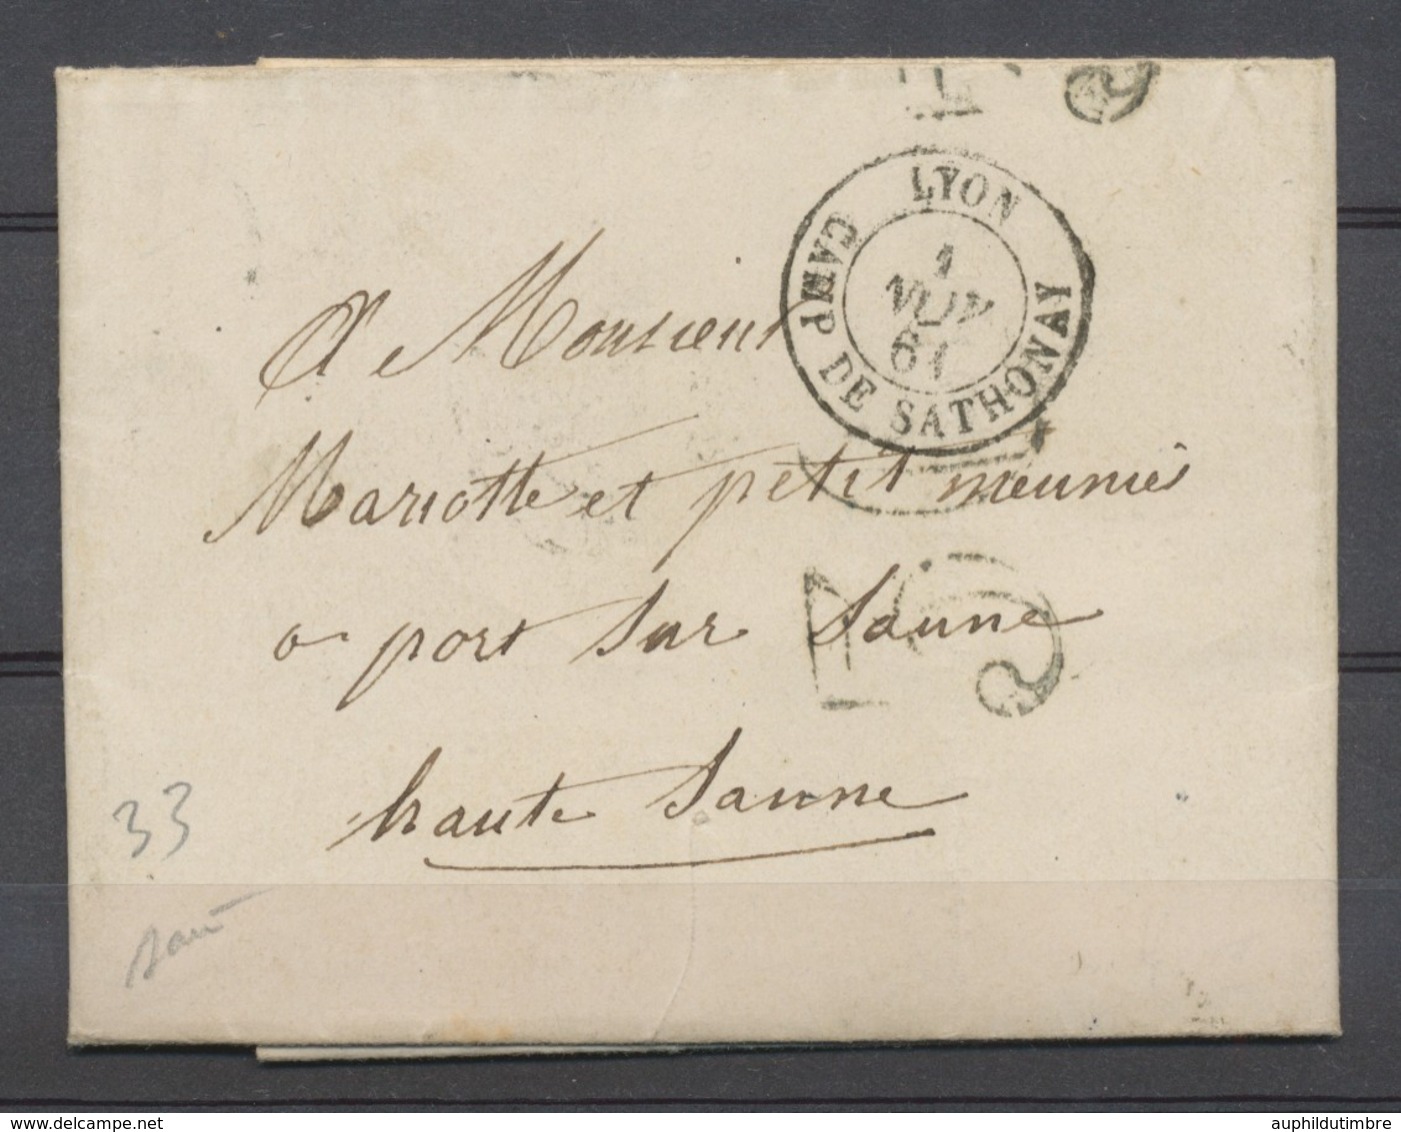 LYON
CAMP DE SATHONAY
1
NOV
61
A Monsieur
Mariotte et petit meunié
a port sur Saune
haute Saune
33
www.delcampe.net
auphildutimbre